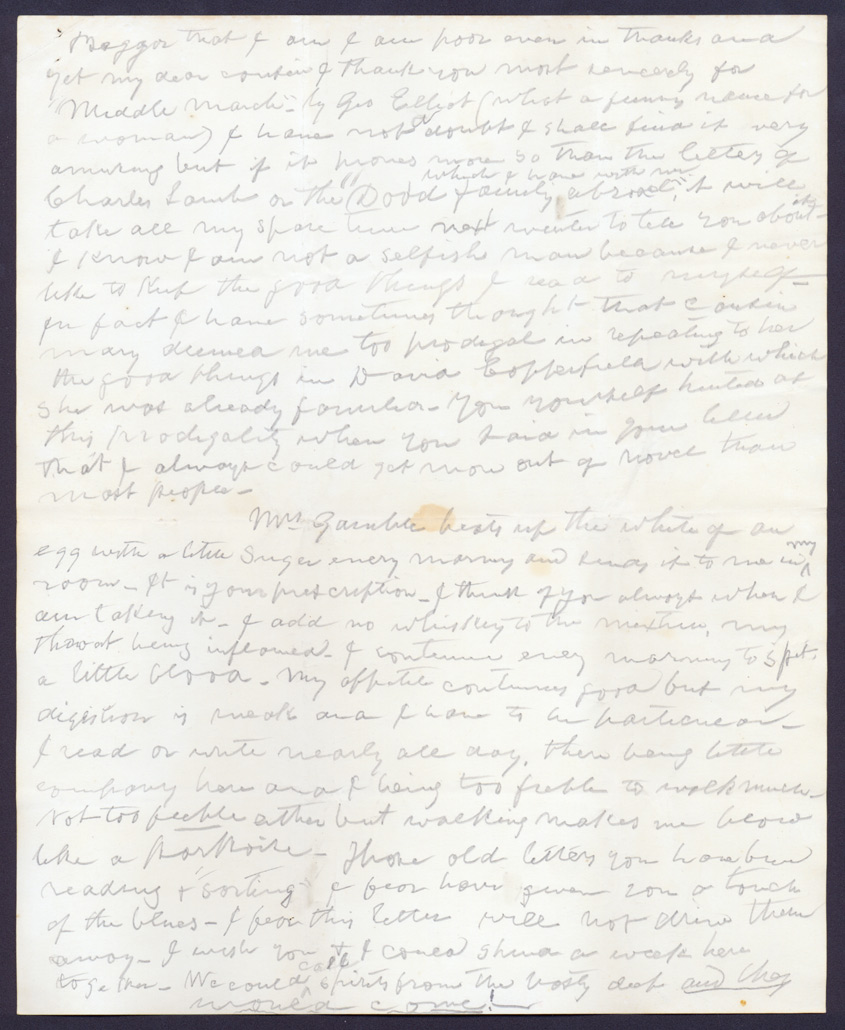 "Beggor that I am I am poor even in thanks and
yet my dear cousin I thank you most sencerely for
"Middle March" by Geo Elliot (what a funny name for
a woman) I have not a doubt I shall find it very
amusing but if it proves more so than the letters of
which I have with me
Charles Lamb or the "Dodd family abroad", it will
take all my spare time next winter to tell you about it
I know I am not a selfish man because I never
like to Keep the good things I read to myself—
In fact I have sometimes thought that Cousin
Mary deemed me too prodigal in repeating to her
the good things in David Copperfield with which
she was already familiar— You yourself hinted at
this prodigality when you said in your letter
that I always could get more out of novel than
most people—
Mrs Gamble beats up the white of an
egg with a little Suger every morning and sends it to me in my
room— It is your prescription— I think of you always when I
am taking it— I add no whiskey to the mixture, my
throat being inflamed— I continue every morning to spit
a little blood— My appetite continues good but my
digestion is weak and I have to be particular—
I read or write nearly all day, there being little
company here and I being too feeble to walk much—
Not too feeble either but walking makes me blow
like a porpoise— Those old letters you have been
reading & "sorting" I fear have given you a touch
of the blues— I fear this letter will not drive them
away— I wish you & I could spend a week here
together— We could call spirits from the vasty deep and they
would come!—